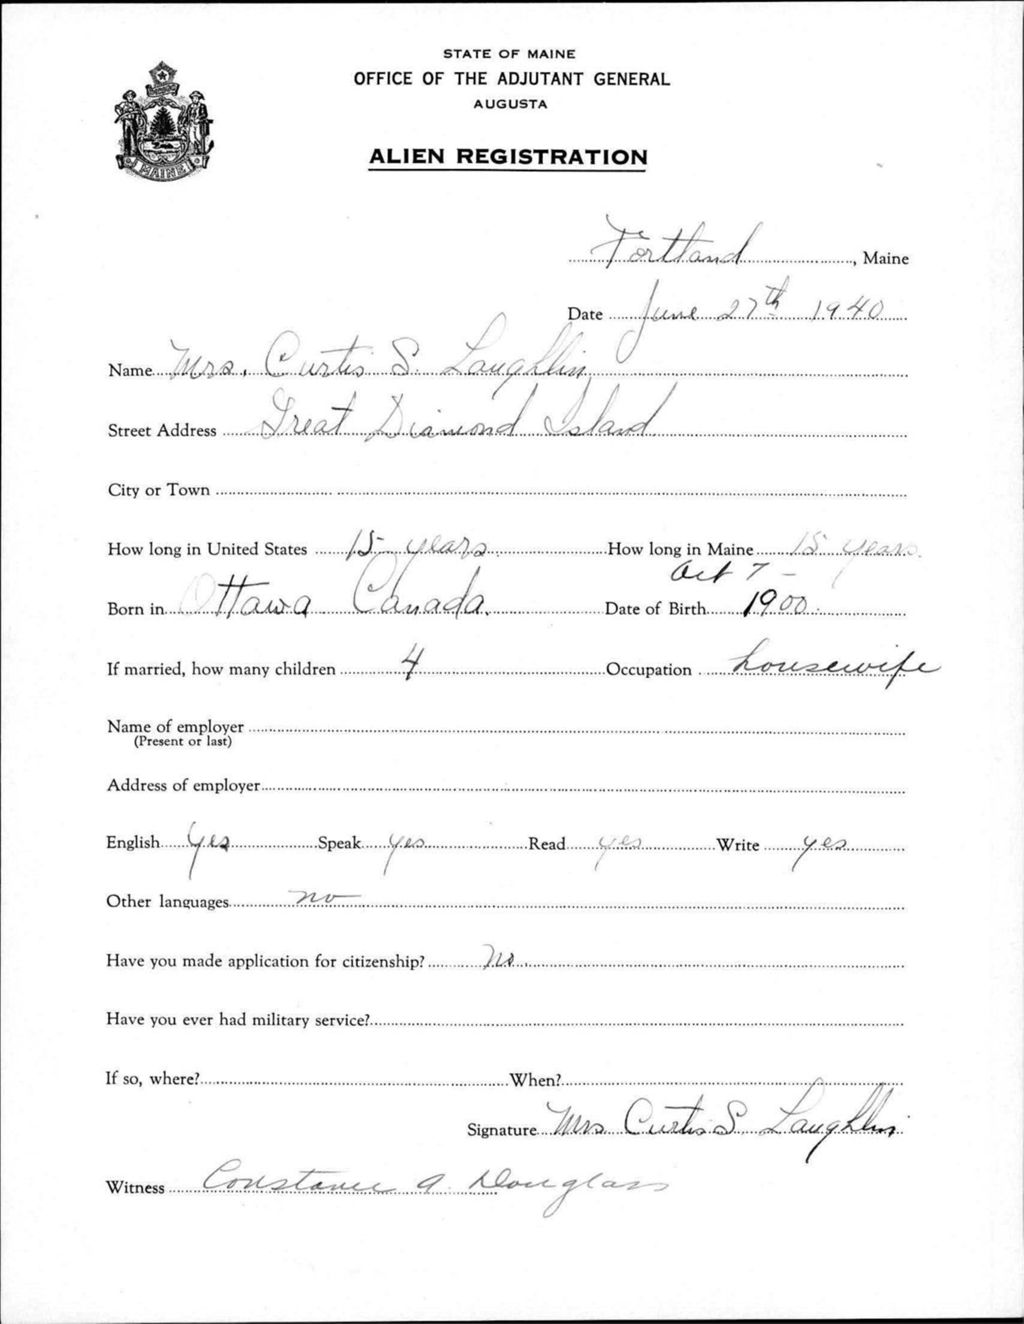 STATE OF MAINE
OFFICE OF THE ADJUTANT GENERAL
AUGUSTA
ALIEN REGISTRATION
MAINE
Portland, Maine
Date June 27th 1940
Name Mrs. Curtis S. Laughlin
Street Address Great Diamond Island
City or Town
How long in United States 15 years. How long in Maine 15 years.
Born in Ottawa Canada. Date of Birth Oct 7 - 1900.
If married, how many children 4 Occupation housewife
Name of employer
(Present or last)
Address of employer
English yes Speak yes Read yes Write yes
Other languages no
Have you made application for citizenship? No.
Have you ever had military service?
If so, where? When?
Signature Mrs Curtis S. Laughlin
Witness Constance A. Douglass